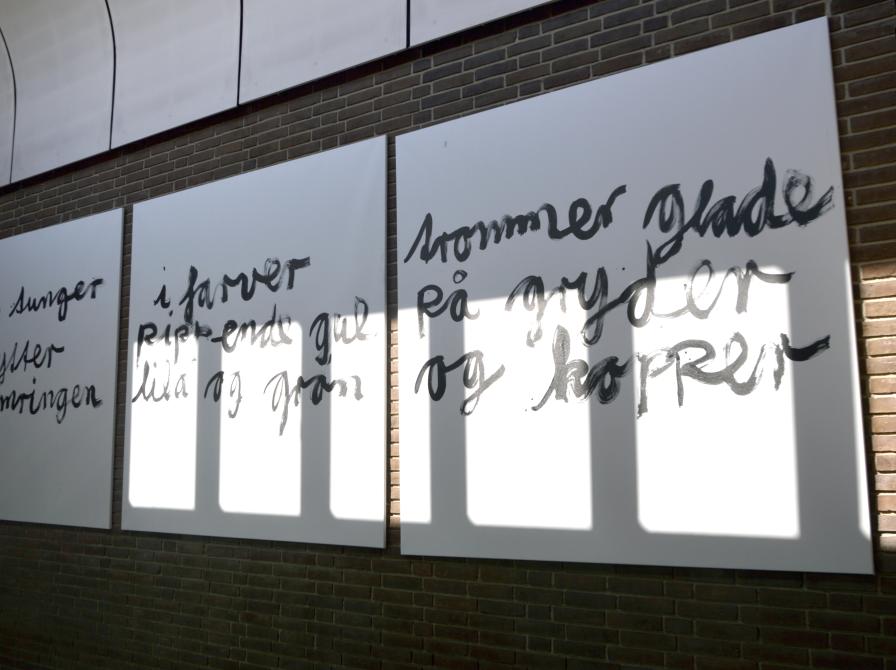 sunger
ytter
mringen
i farver
pippende gul
lila og grøn
trommer glade
på gryder
og kopper